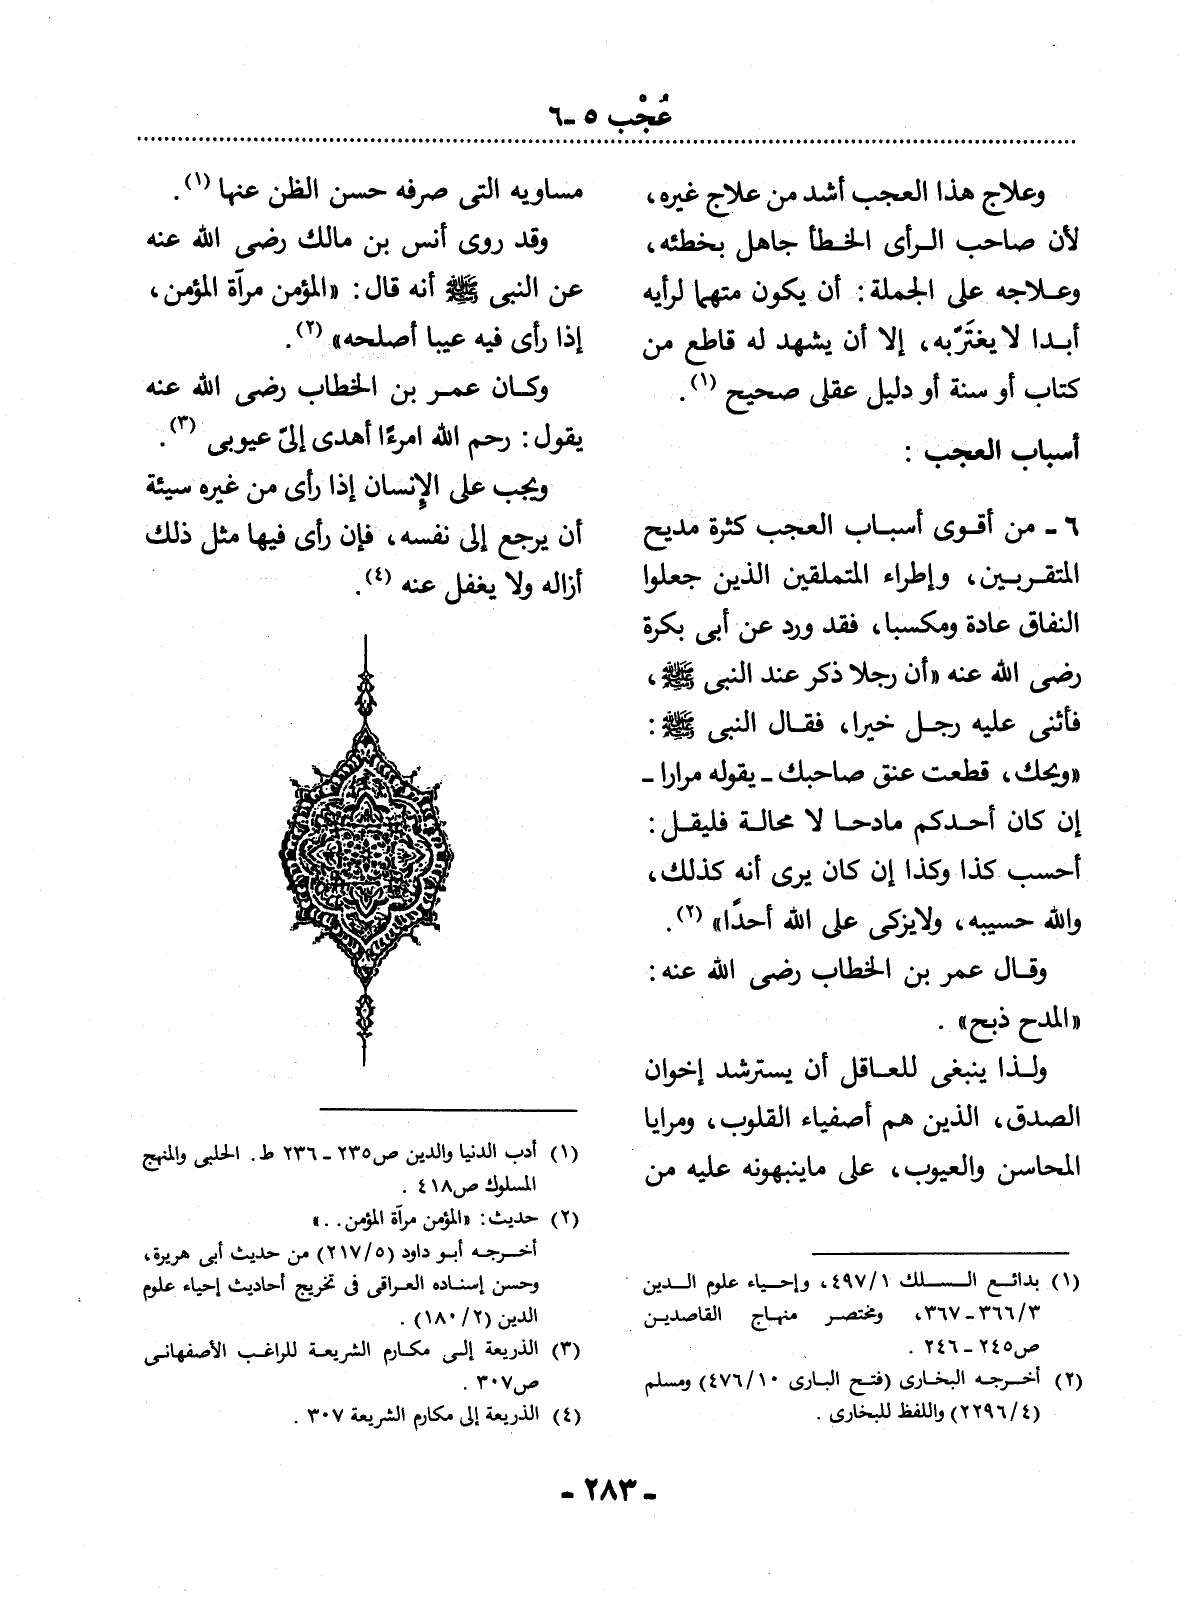 عُجْب ٥ ـ ٦
وعلاج هذا العجب أشد من علاج غيره،
لأن صاحب الرأى الخطأ جاهل بخطئه،
وعلاجه على الجملة: أن يكون متهما لرأيه
أبدا لا يغتَرّ به، إلا أن يشهد له قاطع من
كتاب أو سنة أو دليل عقلى صحيح (١).
أسباب العجب :
٦ ـ من أقوى أسباب العجب كثرة مديح
المتقربين، وإطراء المتملقين الذين جعلوا
النفاق عادة ومكسبا، فقد ورد عن أبى بكرة
رضى الله عنه «أن رجلا ذكر عند النبى ﷺ،
فأثنى عليه رجل خيرا، فقال النبى ﷺ:
«ويحك، قطعت عنق صاحبك ـ يقوله مرارا ـ
إن كان أحدكم مادحا لا محالة فليقل:
أحسب كذا وكذا إن كان يرى أنه كذلك،
والله حسيبه، ولايزكى على الله أحدًا» (٢).
وقال عمر بن الخطاب رضى الله عنه:
«المدح ذبح» .
ولذا ينبغى للعاقل أن يسترشد إخوان
الصدق، الذين هم أصفياء القلوب، ومرايا
المحاسن والعيوب، على ماينبهونه عليه من
(١) بدائع السلك ١/ ٤٩٧، وإحياء علوم الدين
٣/ ٣٦٦ ـ ٣٦٧، ومختصر منهاج القاصدين
ص٢٤٥ ـ ٢٤٦ .
(٢) أخرجه البخارى (فتح البارى ١٠/ ٤٧٦) ومسلم
(٤/ ٢٢٩٦) واللفظ للبخارى .
مساويه التى صرفه حسن الظن عنها (١).
وقد روى أنس بن مالك رضى الله عنه
عن النبى ﷺ أنه قال: «المؤمن مرآة المؤمن،
إذا رأى فيه عيبا أصلحه» (٢).
وكان عمر بن الخطاب رضى الله عنه
يقول: رحم الله امرءًا أهدى إلىّ عيوبى (٣).
ويجب على الإنسان إذا رأى من غيره سيئة
أن يرجع إلى نفسه، فإن رأى فيها مثل ذلك
أزاله ولا يغفل عنه (٤).
(١) أدب الدنيا والدين ص٢٣٥ ـ ٢٣٦ ط. الحلبى والمنهج
المسلوك ص٤١٨ .
(٢) حديث: «المؤمن مرآة المؤمن..»
أخرجه أبو داود (٥/ ٢١٧) من حديث أبى هريرة،
وحسن إسناده العراقى فى تخريج أحاديث إحياء علوم
الدين (٢/ ١٨٠) .
(٣) الذريعة إلى مكارم الشريعة للراغب الأصفهانى
ص٣٠٧ .
(٤) الذريعة إلى مكارم الشريعة ٣٠٧ .
ـ ٢٨٣ ـ